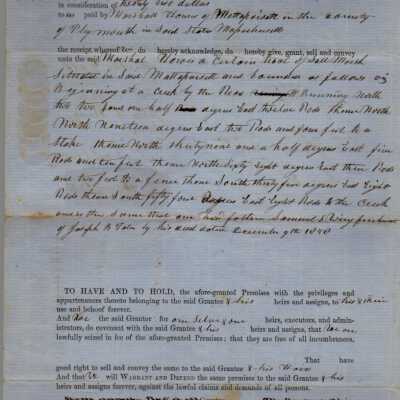 in consideration of Seventy two dollars
to us paid by Marshal Howes of Mattapoisett in the County
of Plymouth in said State Massachusetts
the receipt whereof We, do hereby acknowledge, do hereby give, grant, sell and convey
unto the said Marshal Howes a Certain tract of Salt Marsh
Situated in Said Mattapoisett and bounded as follows viz
Beginning at a Creek by the Running North
two and one half degrees East twelve Rods thence North
North Nineteen degrees East two Rods and four feet to a
Stake thence North thirty nine and a half degrees East five
Rods and ten feet thence North Sixty Eight degrees East three Rods
and two feet to a fence thence South thirty five degrees East Eight
Rods thence South fifty four degrees East Eight Rods to the Creek
the Same that our father Samuel
of Joseph by his deed dated December 9th 1828
TO HAVE AND TO HOLD, the afore-granted Premises with the privileges and
appurtenances thereto belonging to the said Grantee & his heirs and assigns, to his & their
use and behoof forever.
And We the said Grantor for our Selves & our heirs, executors, and admin-
istrators, do covenant with the said Grantee & his heirs and assigns, that We are
lawfully seized in fee of the afore-granted Premises; that they are free of all incumbrances.
That have
good right to sell and convey the same to the said Grantee & his Heirs
And that We will WARRANT AND DEFEND the same premises to the said Grantee & his
heirs and assigns forever, against the lawful claims and demands of all persons.